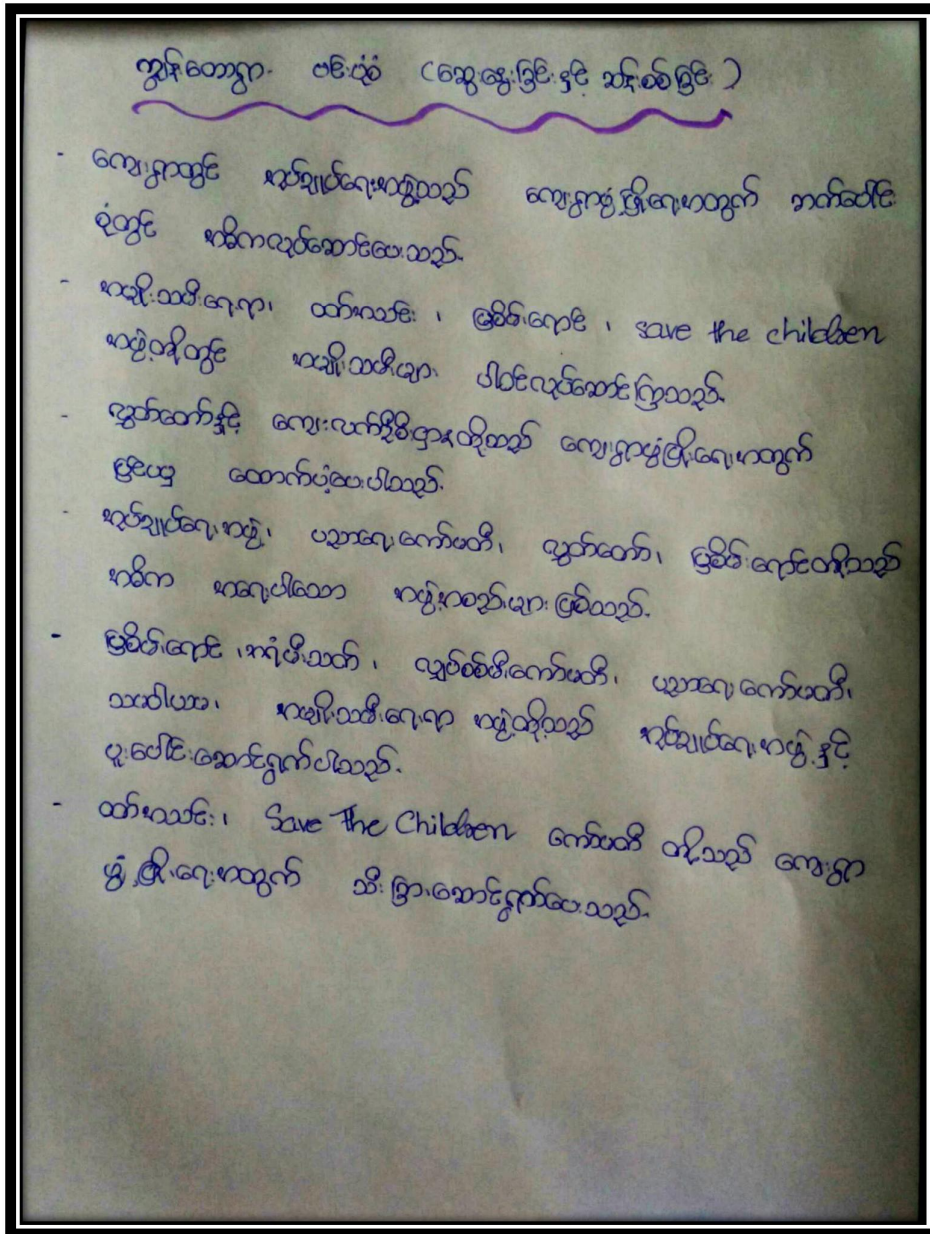 ကျွန်းတောရွာ. ဗင်းပုံစံ (ဆွေးနွေးခြင်းနှင့် ဆန်းစစ်ခြင်း)
- ကျေးရွာတွင် အုပ်ချုပ်ရေးအဖွဲ့သည် ကျေးရွာဖွံ့ဖြိုးရေးအတွက် ဘက်ပေါင်း
စုံတွင် အဓိကလုပ်ဆောင်ပေးသည်.
- အမျိုးသမီးရေးရာ၊ ထာ်အသင်း ၊ မြစိမ်းရောင် ၊ save the children
အဖွဲ့တို့တွင် အမျိုးသမီးများ ပါဝင်လုပ်ဆောင်ကြသည်.
- လွှတ်တော်နှင့် ကျေးလက်ဦးစီးဌာနတို့သည် ကျေးရွာဖွံ့ဖြိုးရေးအတွက်
ပြင်ပမှ ထောက်ပံ့ပေးပါသည်.
- အုပ်ချုပ်ရေးအဖွဲ့၊ ပညာရေးကော်မတီ၊ လွှတ်တော်၊ မြစိမ်းရောင်တို့သည်
အဓိက အရေးပါသော အဖွဲ့အစည်းများ ဖြစ်သည်.
- မြစိမ်းရောင် ၊အရံမီးသတ် ၊ လျှပ်စစ်မီးကော်မတီ၊ ပညာရေးကော်မတီ၊
သမဝါယမ၊ အမျိုးသမီးရေးရာ အဖွဲ့တို့သည် အုပ်ချုပ်ရေးအဖွဲ့နှင့်
ပူးပေါင်းဆောင်ရွက်ပါသည်.
- ထာ်အသင်း၊ Save The Children ကော်မတီ တို့သည် ကျေးရွာ
ဖွံ့ဖြိုးရေးအတွက် သီးခြားဆောင်ရွက်ပေးသည်.